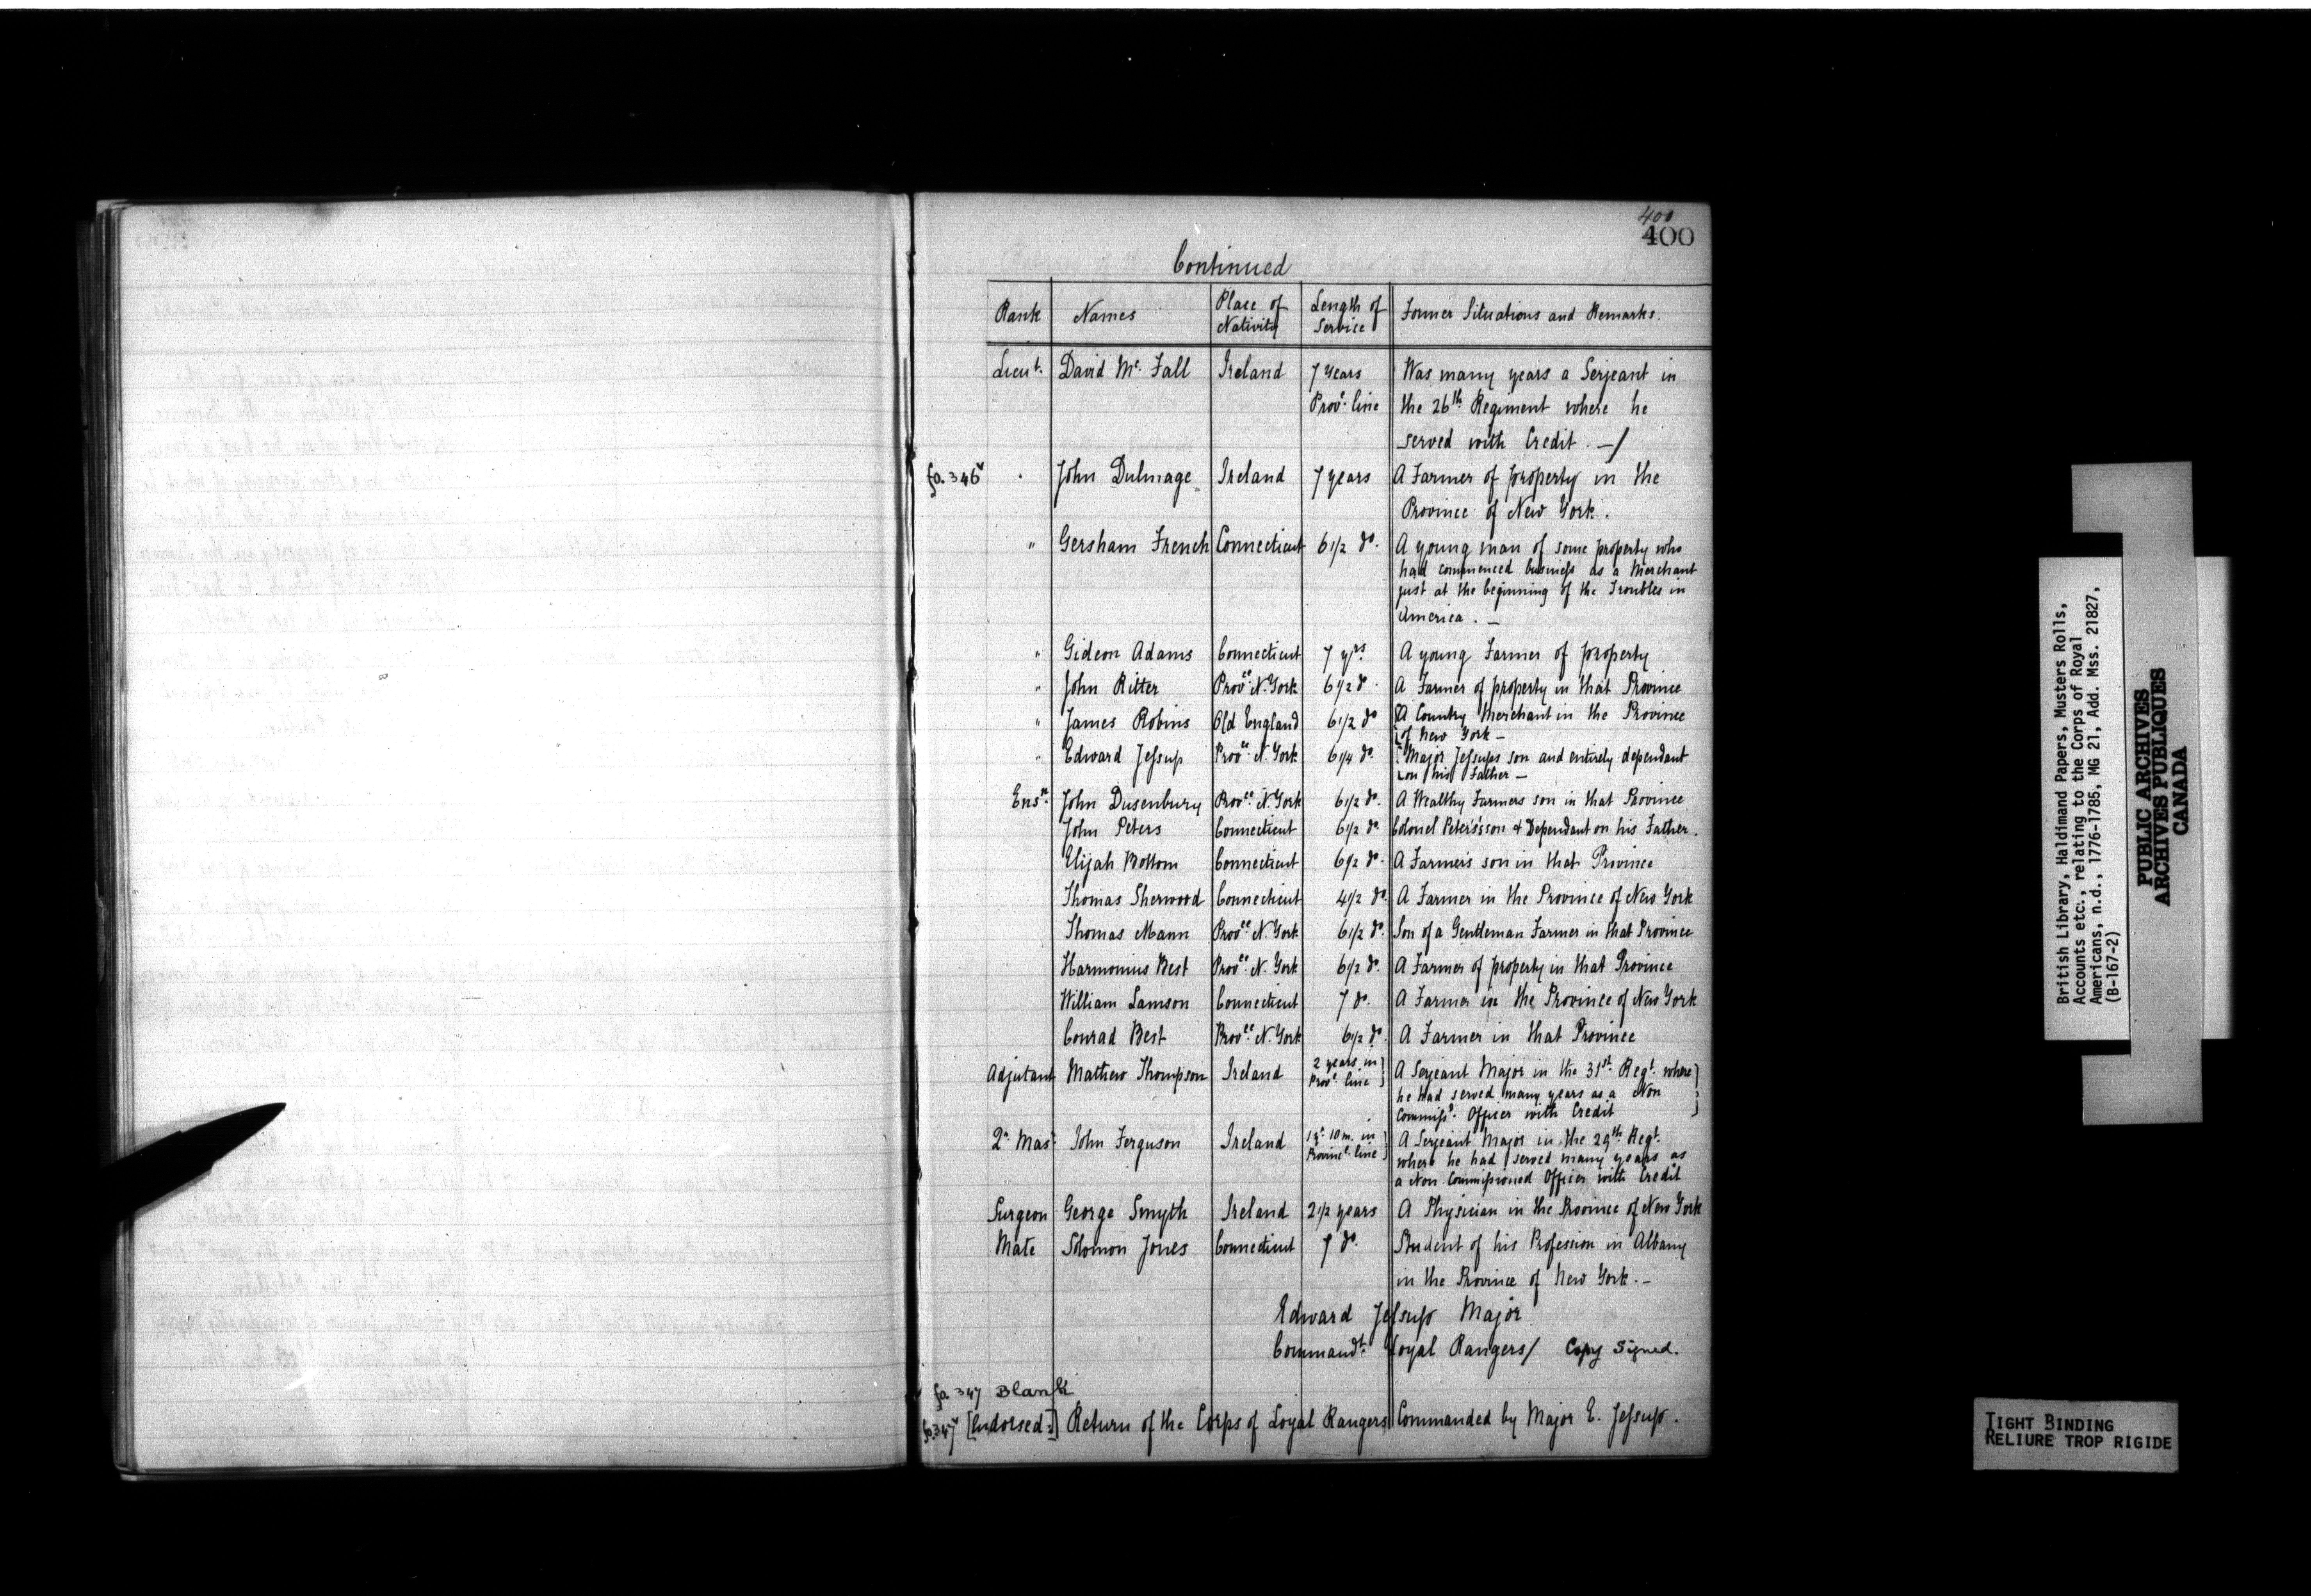 400
400
Continued
Rank Names Place of Nativity Length of Service Former Situations and Remarks.
Lieut. David Mc. Fall Ireland 7 Years Was many years a Serjeant in
Provl. line the 26th Regiment where he
served with Credit. —/
fo. 346v John Dulmage Ireland 7 years A Farmer of property in the
Province of New York.
" Gersham French Connecticut 6 1/2 do. A young man of some property who
had commenced business as a Merchant
just at the beginning of the Troubles in
America. —
" Gideon Adams Connecticut 7 yrs A young Farmer of property
" John Ritter Provce. N. York 6 1/2 do. A Farmer of property in that Province
" James Robins Old England 6 1/2 do A Country Merchant in the Province
of New York —
" Edward Jessup Provce. N. York 6 1/4 do. Major Jessups son and entirely dependant
on his Father —
Ensn. John Dusenbury Provce. N. York 6 1/2 do. A Wealthy Farmers son in that Province
John Peters Connecticut 6 1/2 do. Colonel Peters's son & Dependant on his Father.
Elijah Bottom Connecticut 6 1/2 do. A Farmer's son in that Province
Thomas Sherwood Connecticut 4 1/2 do. A Farmer in the Province of New York
Thomas Mann Provce. N. York 6 1/2 do. Son of a Gentleman Farmer in that Province
Harmonius Best Provce. N. York 6 1/2 do. A Farmer of property in that Province
William Lamson Connecticut 7 do. A Farmer in the Province of New York
Conrad Best Provce. N. York 6 1/2 do. A Farmer in that Province
Adjutant Mathew Thompson Ireland 2 years in A Serjeant Major in the 31st. Regt. where
Provl. line he had served many years as a Non
Commissd. Officer with Credit
Qr. Mas John Ferguson Ireland 1 yr. 10 m. in A Serjeant Major in the 29th. Regt.
Provincl. line where he had served many years as
a Non Commissioned Officer with Credit
Surgeon George Smyth Ireland 2 1/2 years A Physician in the Province of New York
Mate Solomon Jones Connecticut 7 do. Student of his Profession in Albany
in the Province of New York. —
Edward Jessup Major
Commandt. Loyal Rangers/ Copy Signed.
fo. 347 Blank
fo. 347v [Endorsed:] Return of the Corps of Loyal Rangers Commanded by Major E. Jessup.
British Library, Haldimand Papers, Musters Rolls,
Accounts etc., relating to the Corps of Royal
Americans, n.d., 1776-1785, MG 21, Add. Mss. 21827,
(B-167-2)
PUBLIC ARCHIVES
ARCHIVES PUBLIQUES
CANADA
TIGHT BINDING
RELIURE TROP RIGIDE